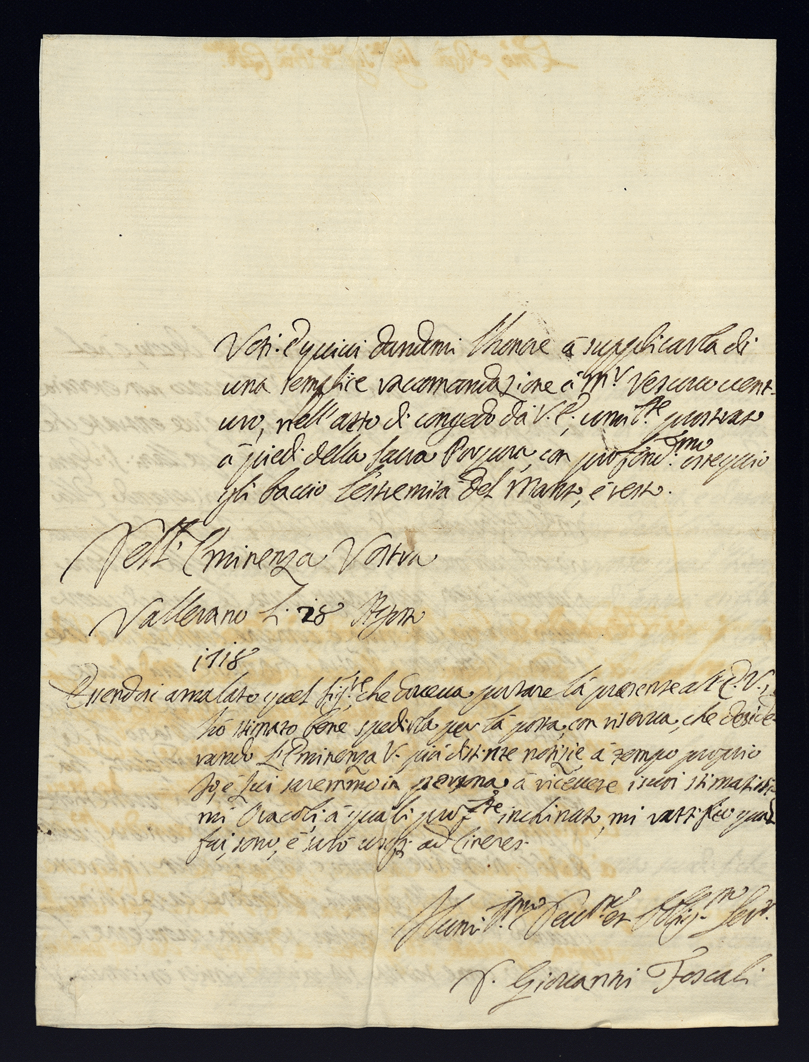 Voti. E quivi dandomi l'honore à supplicarla di
una semplice racomandazione à m.r Vescovo vent-
uro, nell'atto di congedo da V. E., umil.te prostrato
à piedi della sacra Porpora, con profond.mo ossequio
gli baccio l'estremità del Manto, è resto.
Dell' Eminenza Vostra
Vallerano li 28 Agosto
1718
Essendosi amalato quel sig.re che doveva portare la presente all' E. V.,
hò stimato bene spedirla per la posta, con riserva, che deside-
rando l'Eminenza V. più distinte notizie, à tempo proprio
Io, è lui saremmo in persona à ricevere i suoi stimatissi-
mi Oracoli, à quali prof.te inchinato, mi ratifico qual
fui, sono, è sarò ad cineres.
Humi.mo Dev.mo et Obblig.mo Ser.
D. Giovanni Foscali